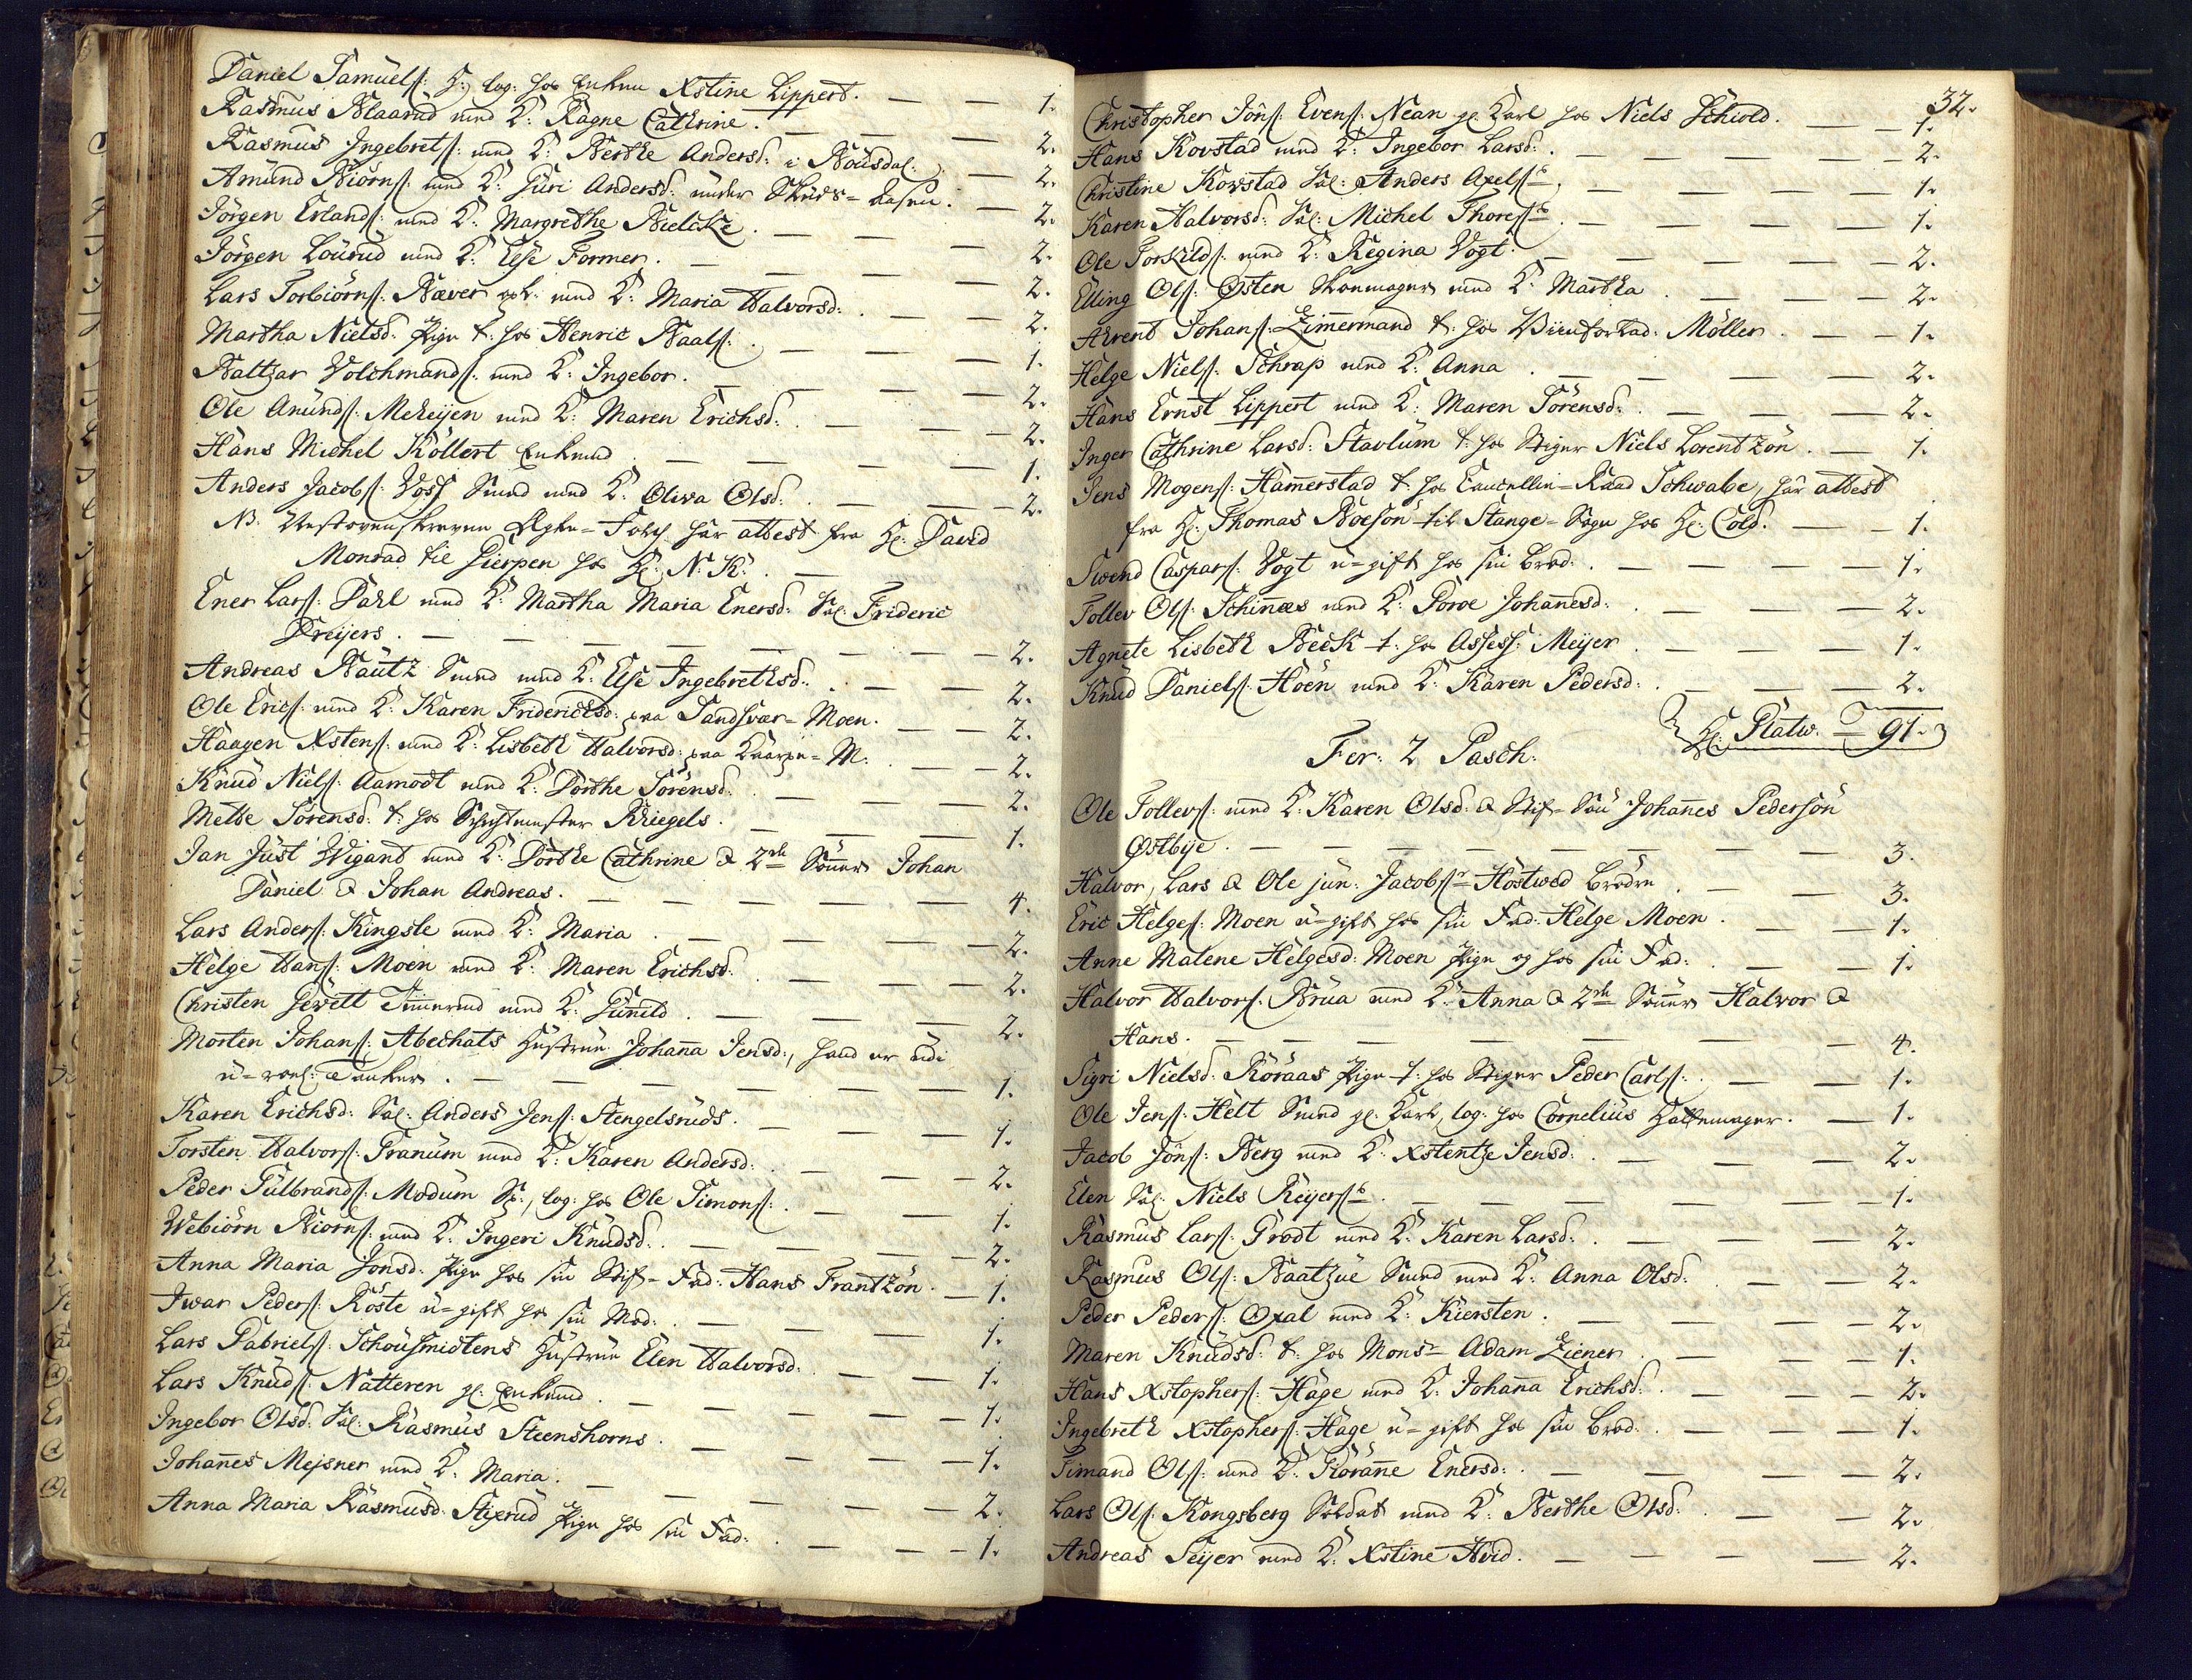 Daniel Samuels: log: hos Xstine Lippert. — — 1.
Rasmus Blaarud med K: Ragne Cathrine. — — — 2.
Rasmus Ingebrets: med K: Berthe Andersd: i Nousdal: — 2.
Amund Biörns: med K: Guri Andersd: under — 2.
Jörgen Erlands: med K: Margrethe Bielcke. — — — 2.
Jörgen Lourud med K: Else Former. — — — — 2.
Lars Torbiörns: Bæver med K: Maria Halvorsd: — — 2.
Martha Nielsd: Pige t: hos Henric Baals: — — — 1.
Baltzar Volchmands: med K: Ingebor. — — — 2.
Ole Anunds: Meheyen med K: Maren Erichsd: — — 2.
Hans Michel Köllert Enkemd — — — — 1.
Anders Jacobs: Voss Smed med K: Oliva Olsd: — — 2.
NB. Ovenskrevne Ægte-Folch har attest fra H: David
Monrad til Gierpen hos H: N. K: —
Ener Lars: Dahl med K: Martha Maria Enersd: Sal: Frideric
Dreyers. — — — — — — 2.
Andreas Bautz Smed med K: Else Ingebrethsd: — — 2.
Ole Erics: med K: Karen Friderichsd: paa Sandsvær-Moen. — 2.
Haagen Xstens: med K: Lisbeth Halvorsd: paa M: — 2.
Knud Niels: Aamodt med K: Dorthe Sörensd: — — — 2.
Mette Sörensd: t: hos Schichtmester Kriegels. — — — 1.
Jan Just Wigant med K: Dorthe Cathrine & 2de Sönner Johan
Daniel & Johan Andreas. — — — — 4.
Lars Anders: Kingste med K: Maria — — — — 2.
Helge Hans: Moen med K: Maren Erichsd: — — — 2.
Christen Gevelt Tömmermd med K: Gunild. — — — 2.
Morten Johans: Abechats Hustrue Johanna Jensd:, hand er udi
— — — — 1.
Karen Erichsd: Sal: Anders Jens: Stengelsruds. — — — 1.
Torsten Halvors: Tranum med K: Karen Andersd: — — 2.
Peder Gulbrands: Modum log: hos Ole Simons: — — 1.
Webiörn Biörns: med K: Ingeri Knudsd: — — — — 2.
Anna Maria Jonsd: Pige hos sin Stif-Fad: Hans Frantzön. — 1.
Iwar Peders: Röste u-gift hos sin Mod: — — — 1.
Lars Gabriels: Schousmidtens Hustrue Elen Halvorsd: — — 1.
Lars Knuds: Natteren gl: Enkemd. — — — — 1.
Ingebor Olsd: Sal: Rasmus Steenshorns. — — — 1.
Johannes Mejsner med K: Maria. — — — — 2.
Anna Maria Rasmusd: Stixrud Pige hos sin Fad: — — 1.
32.
Christopher Jöns: Evens: Nean gl: Karl hos Niels Schiold. — 1.
Hans Kovstad med K: Ingebor Larsd: — — — — 2.
Christine Kovstad Sal: Anders Axels: — — — — 1.
Karen Halvorsd: Sal: Michel Thores: — — — — 1.
Ole Torkilds: med K: Regina Vogt. — — — — 2.
Elling Ols: Østen Skomager med K: Martha — — — 2.
Ahrent Johans: Zimmermand t: hos Möller. — — 1.
Helge Niels: Schrap med K: Anna — — — — 2.
Hans Ernst Lippert med K: Maren Sörensd: — — — 2.
Inger Cathrine Larsd: Stavlum t: hos Stiger Niels Lorentzön. — 1.
Jens Mogens: Hammerstad t: hos Cancellie-Raad Schwabe, har attest
fra H: Thomas Boeson til Stange-Sogn hos H: Cold. — — 1.
Swend Caspars: Vogt u-gift hos sin Brod: — — — 1.
Tollev Ols: Schinnes med K: Goroe Johannesd: — — — 2.
Agnete Lisbeth Beck t: hos Assess: Meyer — — — 1.
Knud Daniels: Höen med K: Karen Pedersd: — — — 2.
H: Platw. = 91.
Fer: 2 Pasch:
Ole Tollevs: med K: Karen Olsd: & Stif-Sön Johannes Pedersön
Østbye. — — — — — — — 3.
Halvor, Lars & Ole jun: Jacobs: Höstwed Brödre — — 3.
Eric Helges: Moen u-gift hos sin Fad: Helge Moen. — — 1.
Anne Malene Helgesd: Moen Pige og hos sin Fad: — — 1.
Halvor Halvors: Brua med K: Anna & 2de Sönner Halvor &
Hans. — — — — — — 4.
Sigri Nielsd: Röraas Pige t: hos Stiger Peder Carls: — — 1.
Ole Jens: Helt Smed gl: Karl, log: hos Cornelius Hattemager. — 1.
Jacob Jöns: Berg med K: Xstentze Jensd: — — — 2.
Elen Sal: Niels Reyers: — — — — — 1.
Rasmus Lars: Grodt med K: Karen Larsd: — — — 2.
Rasmus Ols: Baatzue Smed med K: Anna Olsd: — — 2.
Peder Peders: Oxal med K: Kiersten. — — — — 2.
Maren Knudsd: t: hos Monsr Adam Ziener. — — — 1.
Hans Xstophers: Hage med K: Johanna Erichsd: — — — 2.
Ingebreth Xstophers: Hage u-gift hos sin Brod: — — — 1.
Simand Ols: med K: Goranne Enersd: — — — — 2.
Lars Ols: Kongsberg Soldat med K: Berthe Olsd: — — 2.
Andreas Seyer med K: Xstine Hvid. — — — — 2.